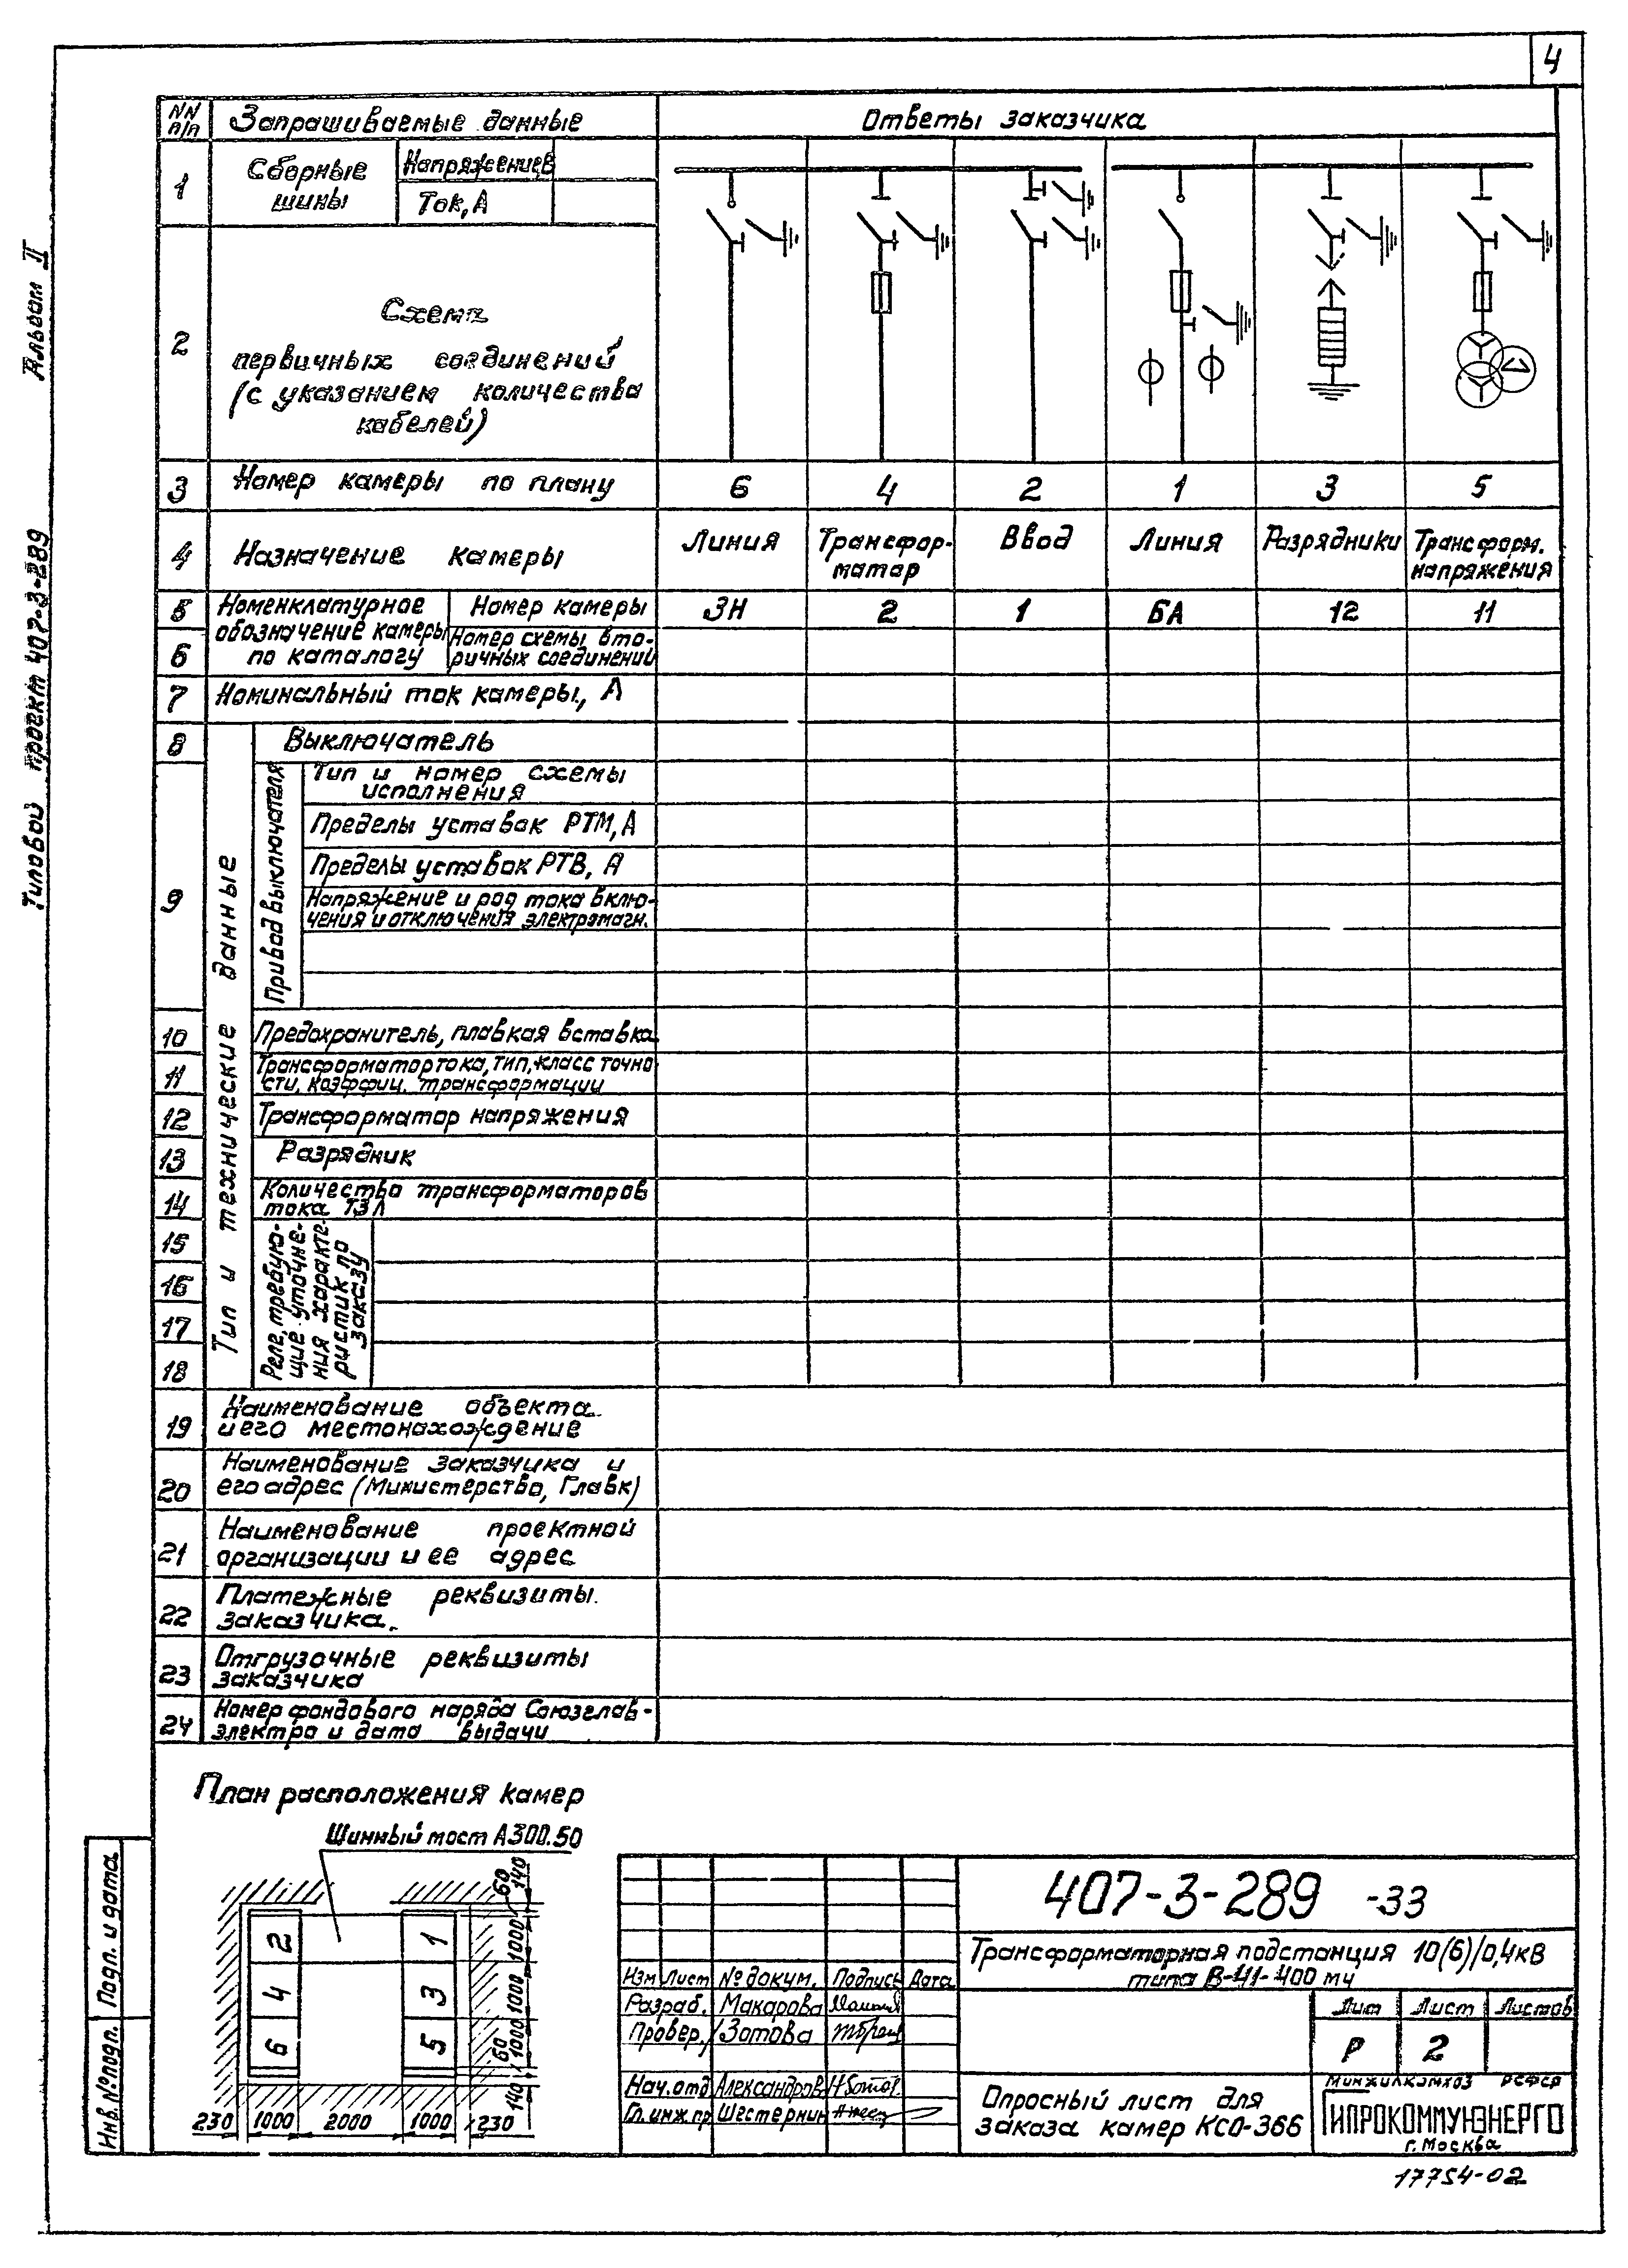 4
Альбом II
Типовой проект 407-3-289
NN п/п
Запрашиваемые данные
Ответы заказчика
1
Сборные шины
Напряжение,В
Ток, А
2
Схема
первичных соединений
(с указанием количества
кабелей)
3
Номер камеры по плану
6 4 2 1 3 5
4
Назначение камеры
Линия
Трансфор-
матор
Ввод
Линия
Разрядники
Трансформ.
напряжения
5
Номенклатурное
обозначение камеры
по каталогу
Номер камеры
3Н 2 1 БА 12 11
6
Номер схемы вто-
ричных соединений
7
Номинальный ток камеры, А
Тип и технические данные
8
Выключатель
9
Привод выключателя
Тип и номер схемы
исполнения
Пределы уставок РТМ, А
Пределы уставок РТВ, А
Напряжение и род тока вклю-
чения и отключения электромагн.
10
Предохранитель, плавкая вставка
11
Трансформатор тока, тип, класс точно-
сти, коэффиц. трансформации
12
Трансформатор напряжения
13
Разрядник
14
Количество трансформаторов
тока ТЗЛ
15
16
17
18
Реле, требую-
щие уточне-
ния характе-
ристик по
заказу
19
Наименование объекта
и его местонахождение
20
Наименование заказчика и
его адрес (Министерство, Главк)
21
Наименование проектной
организации и ее адрес
22
Платежные реквизиты
заказчика.
23
Отгрузочные реквизиты
заказчика
24
Номер фондового наряда Союзглав-
электро и дата выдачи
План расположения камер
Шинный мост А300.50
2 1
4 3
6 5
60 140
1000
1000
1000
60
140
230 1000 2000 1000 230
Инв. № подл. Подп. и дата
407-3-289 -33
Трансформаторная подстанция 10(6)/0,4кВ
типа В-41-400 м4
Изм Лист № докум. Подпись Дата
Разраб. Макарова
Провер. Зотова
Нач.отд Александров
Гл.инж.пр Шестернин
Лит Лист Листов
Р 2
Опросный лист для
заказа камер КСО-366
Минжилкомхоз РСФСР
ГИПРОКОММУНЭНЕРГО
г. Москва
17754-02